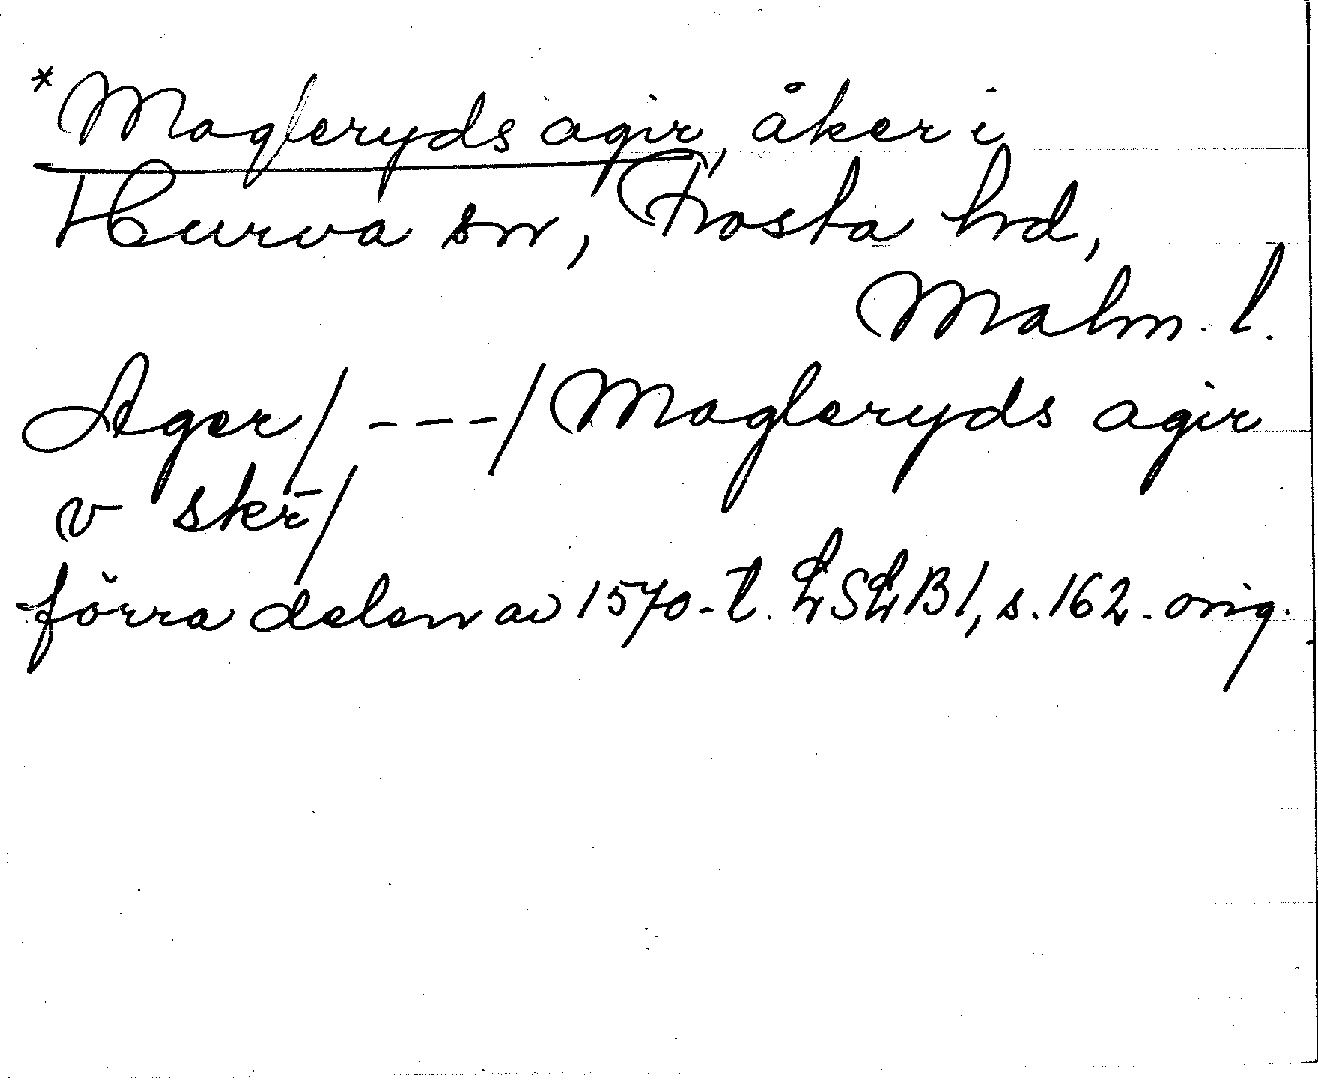 *Magleryds agir, åker i
Hurva sn, Frosta hd,
Malm. l.
Ager/ ---/ Magleryds agir
v skr̄/
förra delen av 1570-t. LSLB 1, s. 162. orig.